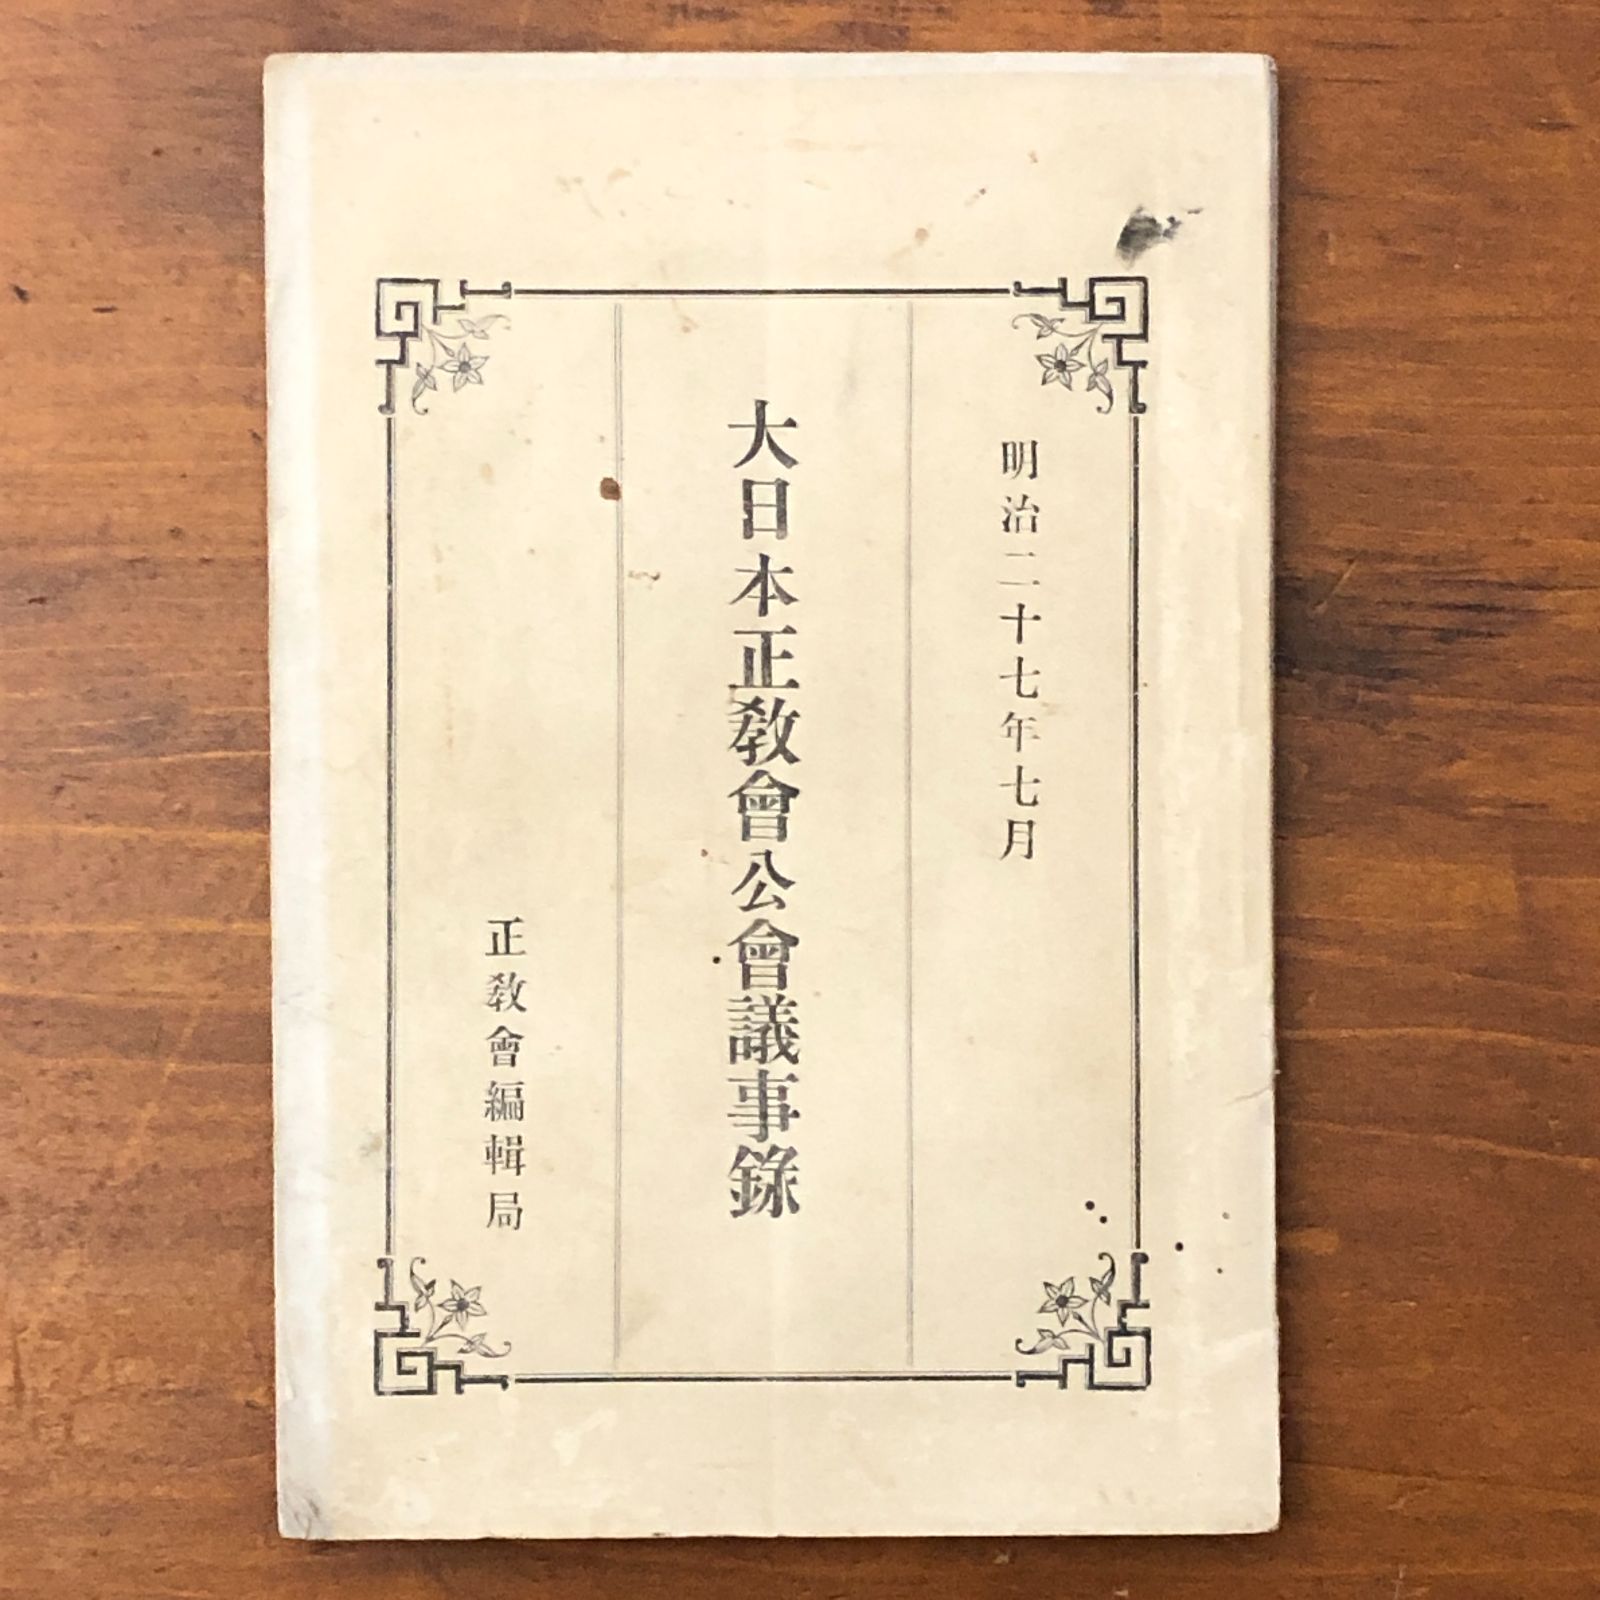 明治二十七年七月
大日本正敎會公會議事錄
正敎會編輯局